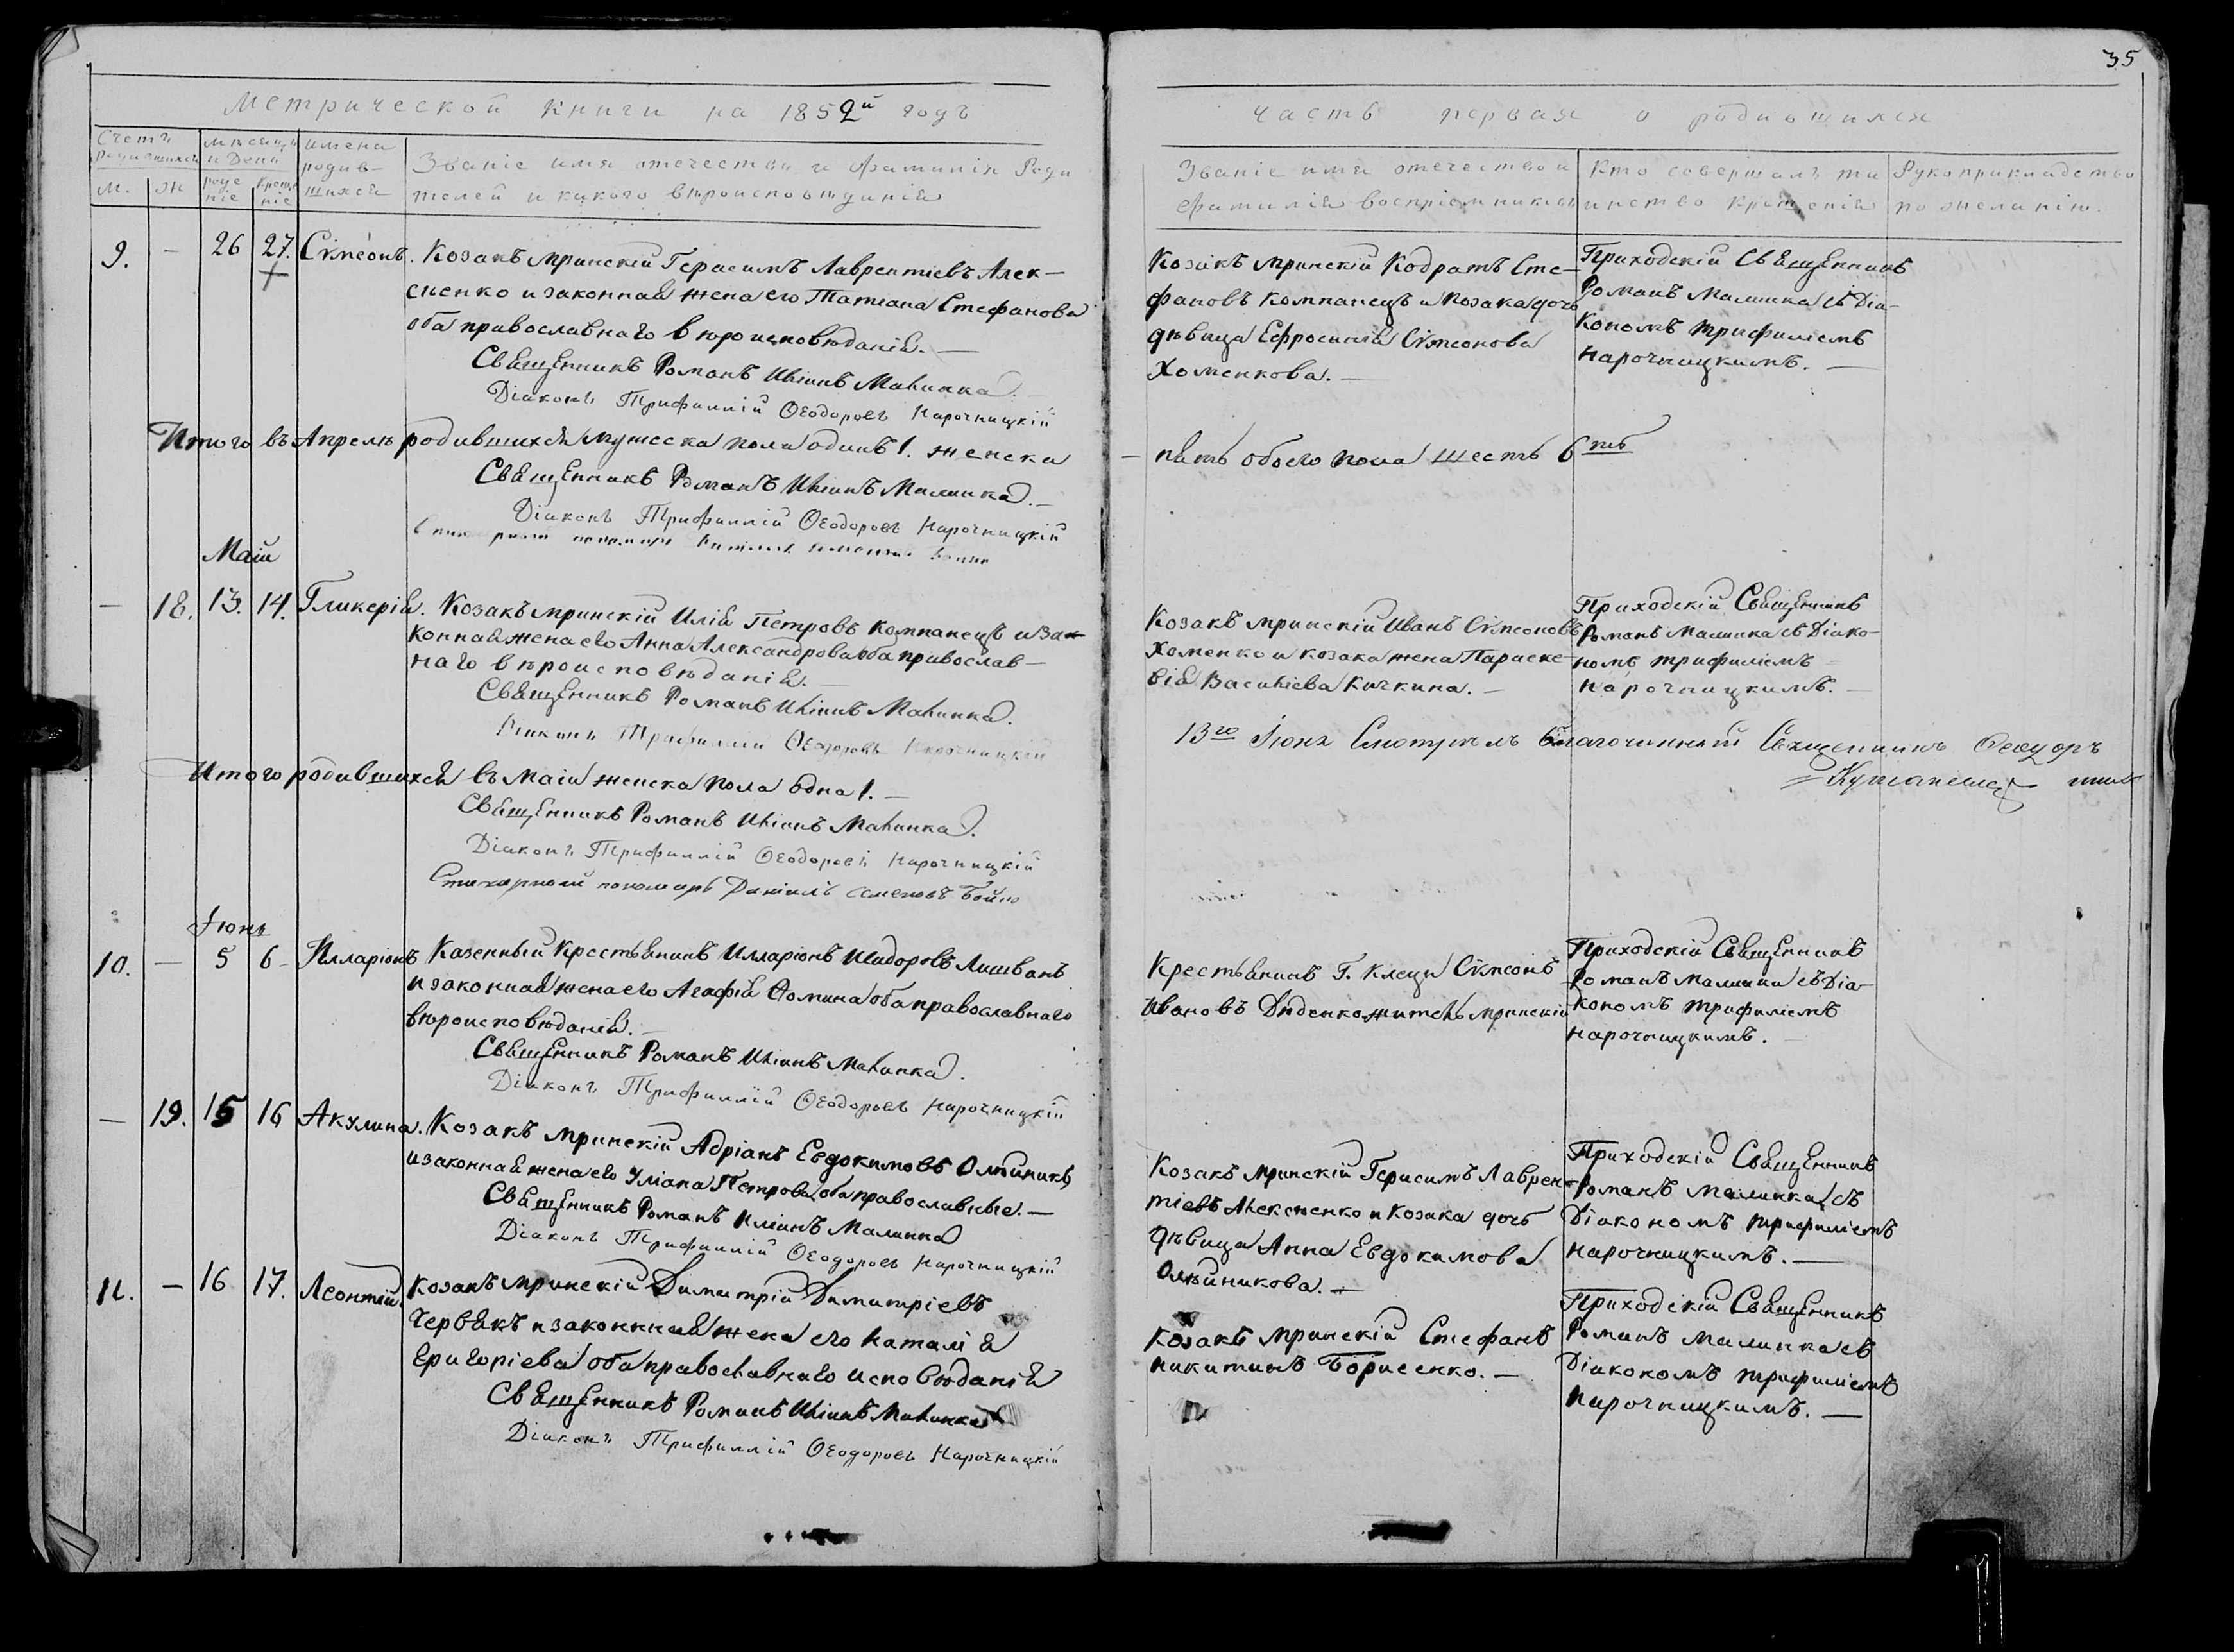 35
Метрической книги на 1852й годъ
Часть первая о родившихся
Счетъ родившихся
М. Ж
Мѣсяцъ и День
рожденіе крещеніе
имена родив-
шихся
Званіе имя отечество и Фамилія Роди
телей и какого вѣроисповѣданія
Званіе имя отечество и
Фамилія воспріемниковъ
Кто совершалъ та
инство крещенія
Рукоприкладство
по желанію.
9. — 26 27. Сѵмеонъ.
Козакъ мринскій Герасимъ Лаврентіевъ Алек-
сѣенко и законная жена его Татіана Стефанова
оба православнаго вѣроисповѣданія. —
Священникъ Романъ Иліинъ Малинка.
Діаконъ Трифиллій Ѳеодоровъ Нарочницкій
Козакъ мринскій Кодратъ Сте-
фановъ Компанецъ и козака дочь
дѣвица Ефросинія Сѵмеонова
Хоменкова. —
Приходскій Священникъ
Романъ Малинка съ Діа-
кономъ Трифиліемъ
Нарочницкимъ. —
Итого въ Апрелѣ родившихся мужеска пола одинъ 1. женска
— пять обоего пола шесть 6ть
Священникъ Романъ Иліинъ Малинка. —
Діаконъ Трифиллій Ѳеодоровъ Нарочницкій
Маія
— 18. 13. 14. Гликерія.
Козакъ мринскій Илія Петровъ Компанецъ и зак
конная жена его Анна Александрова оба православ-
наго вѣроисповѣданія. —
Священникъ Романъ Иліинъ Малинка.
Діаконъ Трифиллій Ѳеодоровъ Нарочницкій
Козакъ мринскій Иванъ Сѵмеоновъ
Хоменко и козака жена Параске-
вія Василіева Кичкина. —
Приходскій Священникъ
Романъ Малинка съ Діако-
номъ Трифиліемъ
Нарочницкимъ. —
13го Іюня Смотрѣлъ благочинный Священникъ Ѳеодоръ
Итого родившихся въ Маіи женска пола одна 1. —
Священникъ Романъ Иліинъ Малинка.
Діаконъ Трифиллій Ѳеодоровъ Нарочницкій
Стихарный пономарь Даніилъ Семеновъ Бойко
Іюнь
10. — 5 6 Илларіонъ
Казенный Крестьянинъ Илларіонъ Исидоровъ Лишванъ
и законная жена его Агафія Ѳомина оба православнаго
вѣроисповѣданія. —
Священникъ Романъ Иліинъ Малинка.
Діаконъ Трифиллій Ѳеодоровъ Нарочницкій
Крестьянинъ Г. Сѵмеонъ
Ивановъ Дяденко житель мринскій
Приходскій Священникъ
Романъ Малинка съ Діа-
кономъ Трифиліемъ
Нарочницкимъ.
— 19. 15 16 Акулина.
Козакъ мринскій Адріанъ Евдокимовъ Олѣйникъ
и законная жена его Уліана Петрова, оба православные. —
Священникъ Романъ Иліинъ Малинка
Діаконъ Трифиллій Ѳеодоровъ Нарочницкій
Козакъ мринскій Герасимъ Лаврен-
тіевъ Алексѣенко и козака дочь
дѣвица Анна Евдокимова
Олѣйникова. —
Приходскій Священникъ
Романъ Малинка съ
Діакономъ Трифиліемъ
Нарочницкимъ. —
11. — 16 17. Леонтій.
Козакъ мринскій Димитрій Димитріевъ
Червякъ и законнная жена его Наталія
Григоріева оба православнаго исповѣданія
Священникъ Романъ Иліинъ Малинка
Діаконъ Трифиллій Ѳеодоровъ Нарочницкій
Козакъ мринскій Стефанъ
Никитинъ Борисенко. —
Приходскій Священникъ
Романъ Малинка съ
Діакономъ Трифиліемъ
Нарочницкимъ. —